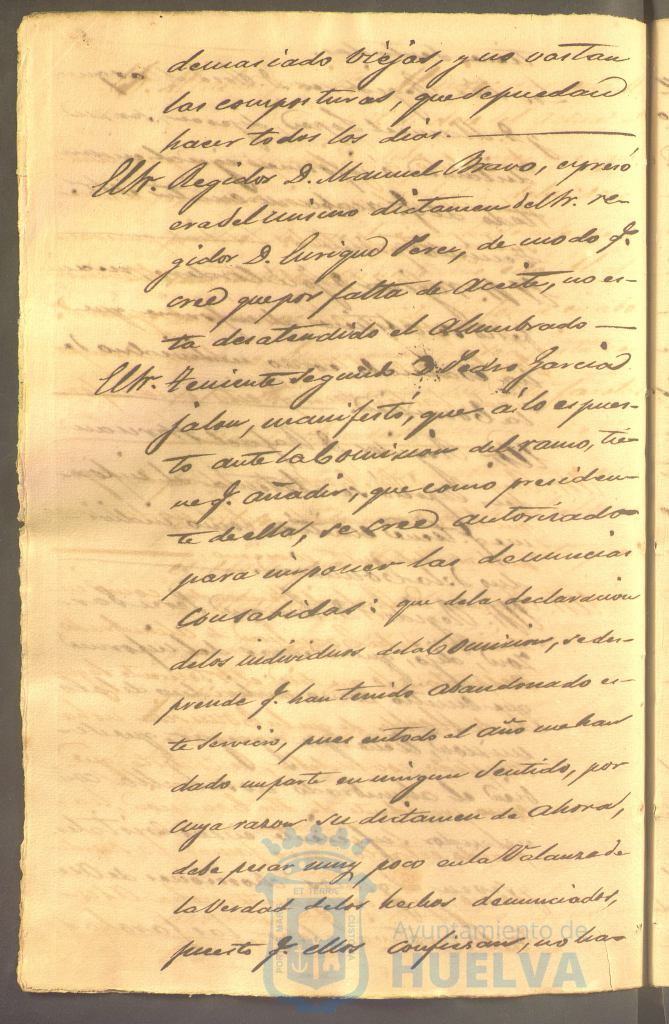 demasiado viejas, y no vastan
las composturas, que se puedan
hacer todos los dias.
El Sr. Regidor D. Manuel Bravo, espresó
era del mismo dictamen del Sr. re-
gidor D. Enrique Perez, de modo q.
cree que por falta de Aceite, no es-
ta desatendido el Alumbrado
El Sr. Teniente segundo D Pedro Garcia
jalon, manifestó, que á lo espues-
to ante la Comision del ramo, tie-
ne q. añadir, que como presiden-
te de ella, se cree autorizado
para imponer las denuncias
consabidas: que de la declaracion
de los individuos de la Comision, se des-
prende q. han tenido abandonado es-
te servicio, pues en todo el año me han
dado un parte en ningun sentido, por
cuya razon su dictamen de ahora,
debe pesar muy poco en la Valanza de
la verdad de los hechos denunciados,
puesto q. ellos confiezan, no han
ET TERRA
CUSTODIA
Ayuntamiento de
HUELVA